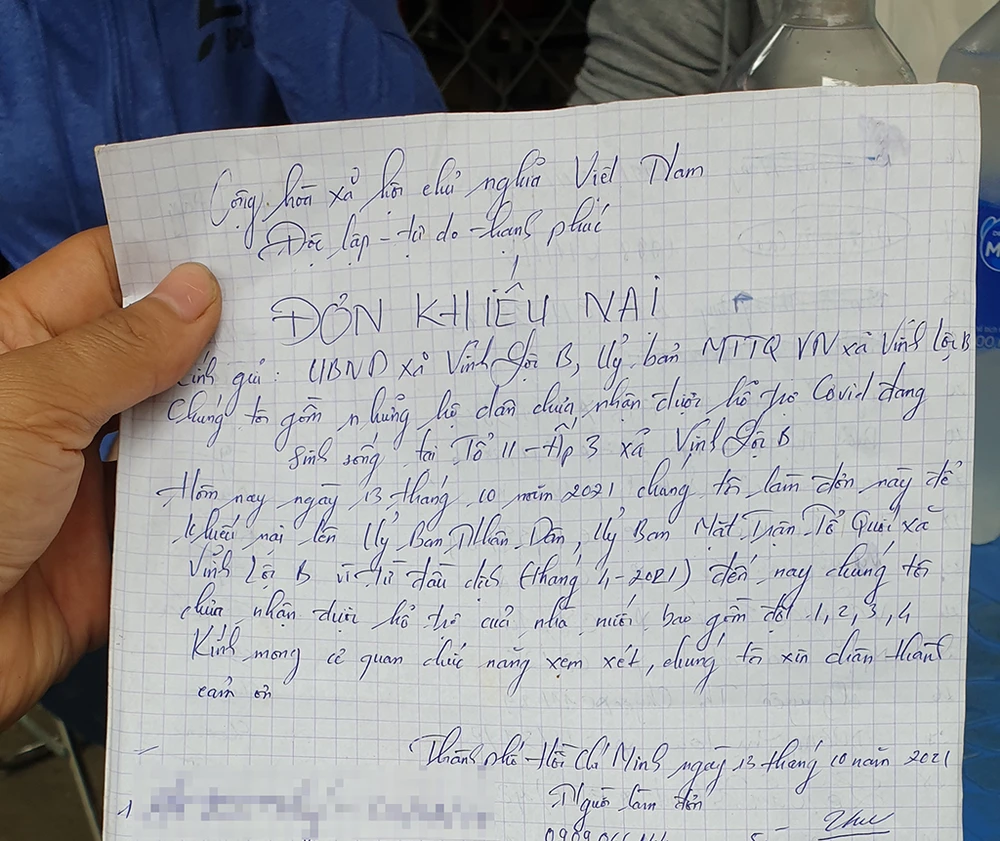 Cộng hòa xả hội chủ nghỉa Việt Nam
Độc lập - tự do - hạnh phúc
ĐƠN KHIẾU NẠI
Kính gửi: UBND xả Vĩnh Lộc B, Uỷ ban MTTQ VN xả Vĩnh Lộc B
Chúng tôi gồm nhưng hộ dân chưa nhận được hổ trợ Covid đang
sinh sống tại Tổ 11 - Ấp 3 xả Vĩnh Lộc B
Hôm nay ngày 13 tháng 10 năm 2021 chúng tôi làm đơn này để
khiếu nại lên Uỷ Ban Nhân Dân, Uỷ Ban Mặt Trận Tổ Quốc xã
Vĩnh Lộc B vì từ đầu dịch (tháng 4-2021) đến nay chúng tôi
chưa nhận được hổ trợ của nhà nước bao gồm đợt 1, 2, 3, 4
Kính mong cơ quan chức năng xem xét, chúng tôi xin chân thành
cảm ơn
Thành phố Hồ Chí Minh ngày 13 tháng 10 năm 2021
Người làm đơn
1